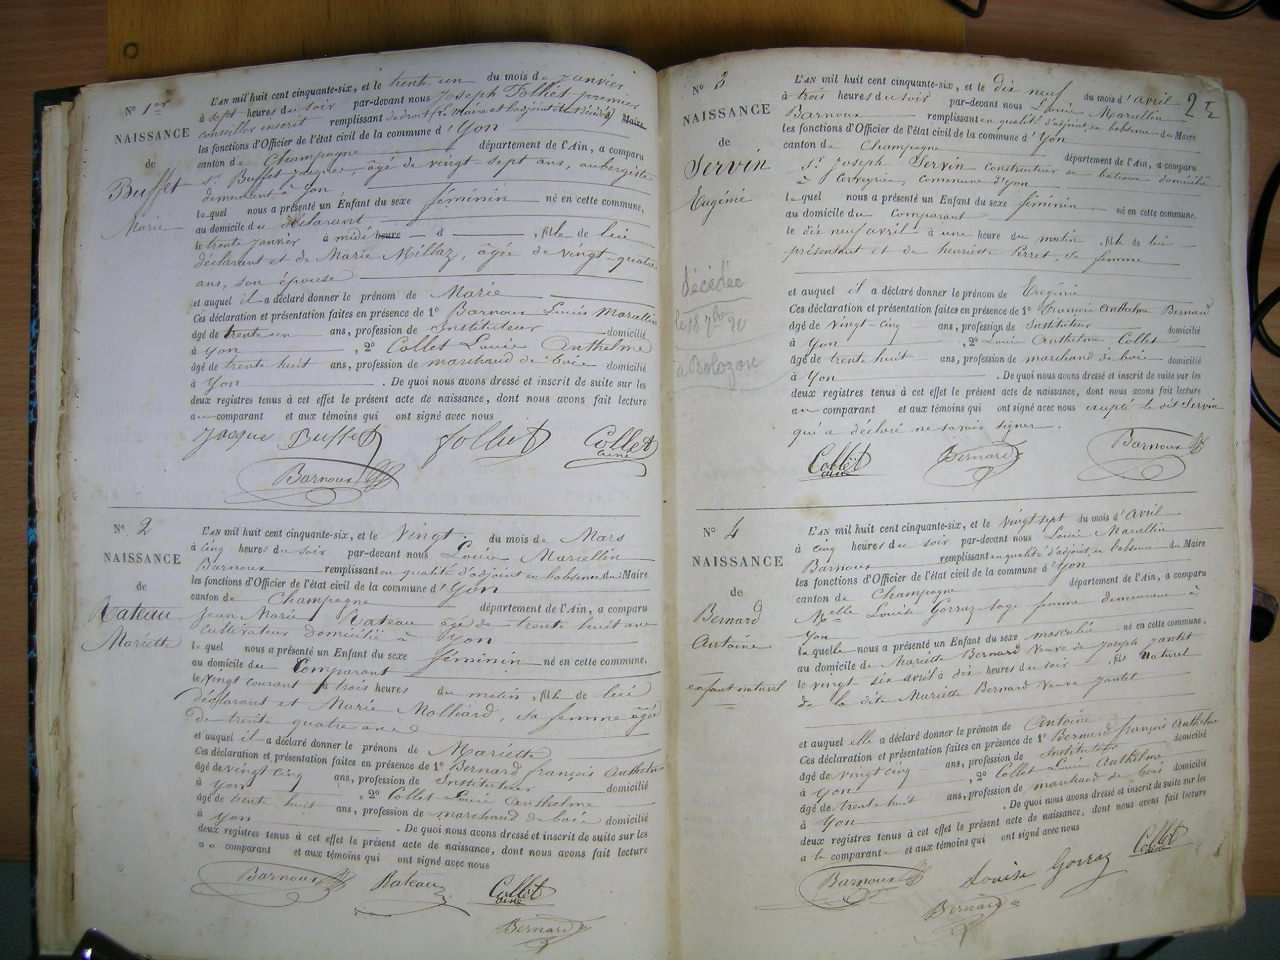 N° 1er
NAISSANCE
de
Buffet
Marie
L'AN mil huit cent cinquante-six, et le trente un du mois de janvier
à sept heures du soir par-devant nous Joseph Tolliet premier
conseiller inscrit remplissant de droit le Maire et l'adjoint Maire
les fonctions d'Officier de l'état civil de la commune d'Yon
canton de Champagne département de l'Ain, a comparu
sr Buffet âgé de vingt-sept ans, aubergiste
demeurant à Yon
lequel nous a présenté un Enfant du sexe féminin né en cette commune,
au domicile du déclarant
le trente janvier à midi heure d , fille de lui
déclarant et de Marie Millaz, âgée de vingt-quatre
ans, son épouse
et auquel il a déclaré donner le prénom de Marie
Ces déclaration et présentation faites en présence de 1° Barnoux Louis Marcellin
âgé de trente un ans, profession de instituteur domicilié
à Yon , 2° Collet Louis Anthelme
âgé de trente huit ans, profession de marchand de bois domicilié
à Yon . De quoi nous avons dressé et inscrit de suite sur les
deux registres tenus à cet effet le présent acte de naissance, dont nous avons fait lecture
au comparant et aux témoins qui ont signé avec nous
Jacque Buffet Tolliet Collet
ainé
Barnoux
N° 2
NAISSANCE
de
Rateau
Mariette
L'AN mil huit cent cinquante-six, et le Vingt du mois de Mars
à cinq heures du soir par-devant nous Louis Marcellin
Barnoux remplissant en qualité d'adjoint en l'absence du Maire
les fonctions d'Officier de l'état civil de la commune d'Yon
canton de Champagne département de l'Ain, a comparu
Jean Marie Rateau âgé de trente huit ans
cultivateur domicilié à Yon
lequel nous a présenté un Enfant du sexe féminin né en cette commune,
au domicile du Comparant
le vingt courant à trois heures du matin , fille de lui
déclarant et Marie Malliard, sa femme âgée
de trente quatre ans
et auquel il a déclaré donner le prénom de Mariette
Ces déclaration et présentation faites en présence de 1° Bernard françois Anthelme
âgé de vingt cinq ans, profession de Instituteur domicilié
à Yon , 2° Collet Louis Anthelme
âgé de trente huit ans, profession de marchand de bois domicilié
à Yon . De quoi nous avons dressé et inscrit de suite sur les
deux registres tenus à cet effet le présent acte de naissance, dont nous avons fait lecture
au comparant et aux témoins qui ont signé avec nous
Barnoux Rateau Collet
ainé
Bernard
2
N° 3
NAISSANCE
de
Servin
Eugénie
décédée
le 18 7bre 90
à Bolozon
L'AN mil huit cent cinquante-six, et le dix neuf du mois d'avril
à trois heures du soir par-devant nous Louis Marcellin
Barnoux remplissant en qualité d'adjoint en l'absence du Maire
les fonctions d'Officier de l'état civil de la commune d'Yon
canton de Champagne département de l'Ain, a comparu
sr Joseph Servin constructeur en bateaux domicilié
à commune d'yon
lequel nous a présenté un Enfant du sexe féminin né en cette commune,
au domicile du comparant
le dix neuf avril à une heure du matin , fille de lui
présentant et de henriette Pirret, sa femme
et auquel il a déclaré donner le prénom de Eugénie
Ces déclaration et présentation faites en présence de 1° François Anthelme Bernard
âgé de vingt-cinq ans, profession de Instituteur domicilié
à Yon , 2° Louis Anthelme Collet
âgé de trente huit ans, profession de marchand de bois domicilié
à Yon . De quoi nous avons dressé et inscrit de suite sur les
deux registres tenus à cet effet le présent acte de naissance, dont nous avons fait lecture
au comparant et aux témoins qui ont signé avec nous excepté le dit Servin
qui a déclaré ne savoir signer.
Collet Bernard Barnoux
ainé
N° 4
NAISSANCE
de
Bernard
Antoine
enfant naturel
L'AN mil huit cent cinquante-six, et le vingt sept du mois d'avril
à cinq heures du soir par-devant nous Louis Marcellin
Barnoux remplissant en qualité d'adjoint en l'absence du Maire
les fonctions d'Officier de l'état civil de la commune d'Yon
canton de Champagne département de l'Ain, a comparu
Melle Louise Gorraz sage femme demeurant à
Yon
laquelle nous a présenté un Enfant du sexe masculin né en cette commune,
au domicile de Mariette Bernard Veuve de Joseph Jantet
le vingt six avril à dix heures du soir , fils naturel
de la dite Mariette Bernard Veuve Jantet
et auquel elle a déclaré donner le prénom de Antoine
Ces déclaration et présentation faites en présence de 1° Bernard françois Anthelme
âgé de vingt cinq ans, profession de Instituteur domicilié
à Yon , 2° Collet Louis Anthelme
âgé de trente huit ans, profession de marchand de bois domicilié
à Yon . De quoi nous avons dressé et inscrit de suite sur les
deux registres tenus à cet effet le présent acte de naissance, dont nous avons fait lecture
a la comparante et aux témoins qui ont signé avec nous
Barnoux Louise Gorraz Collet
ainé
Bernard